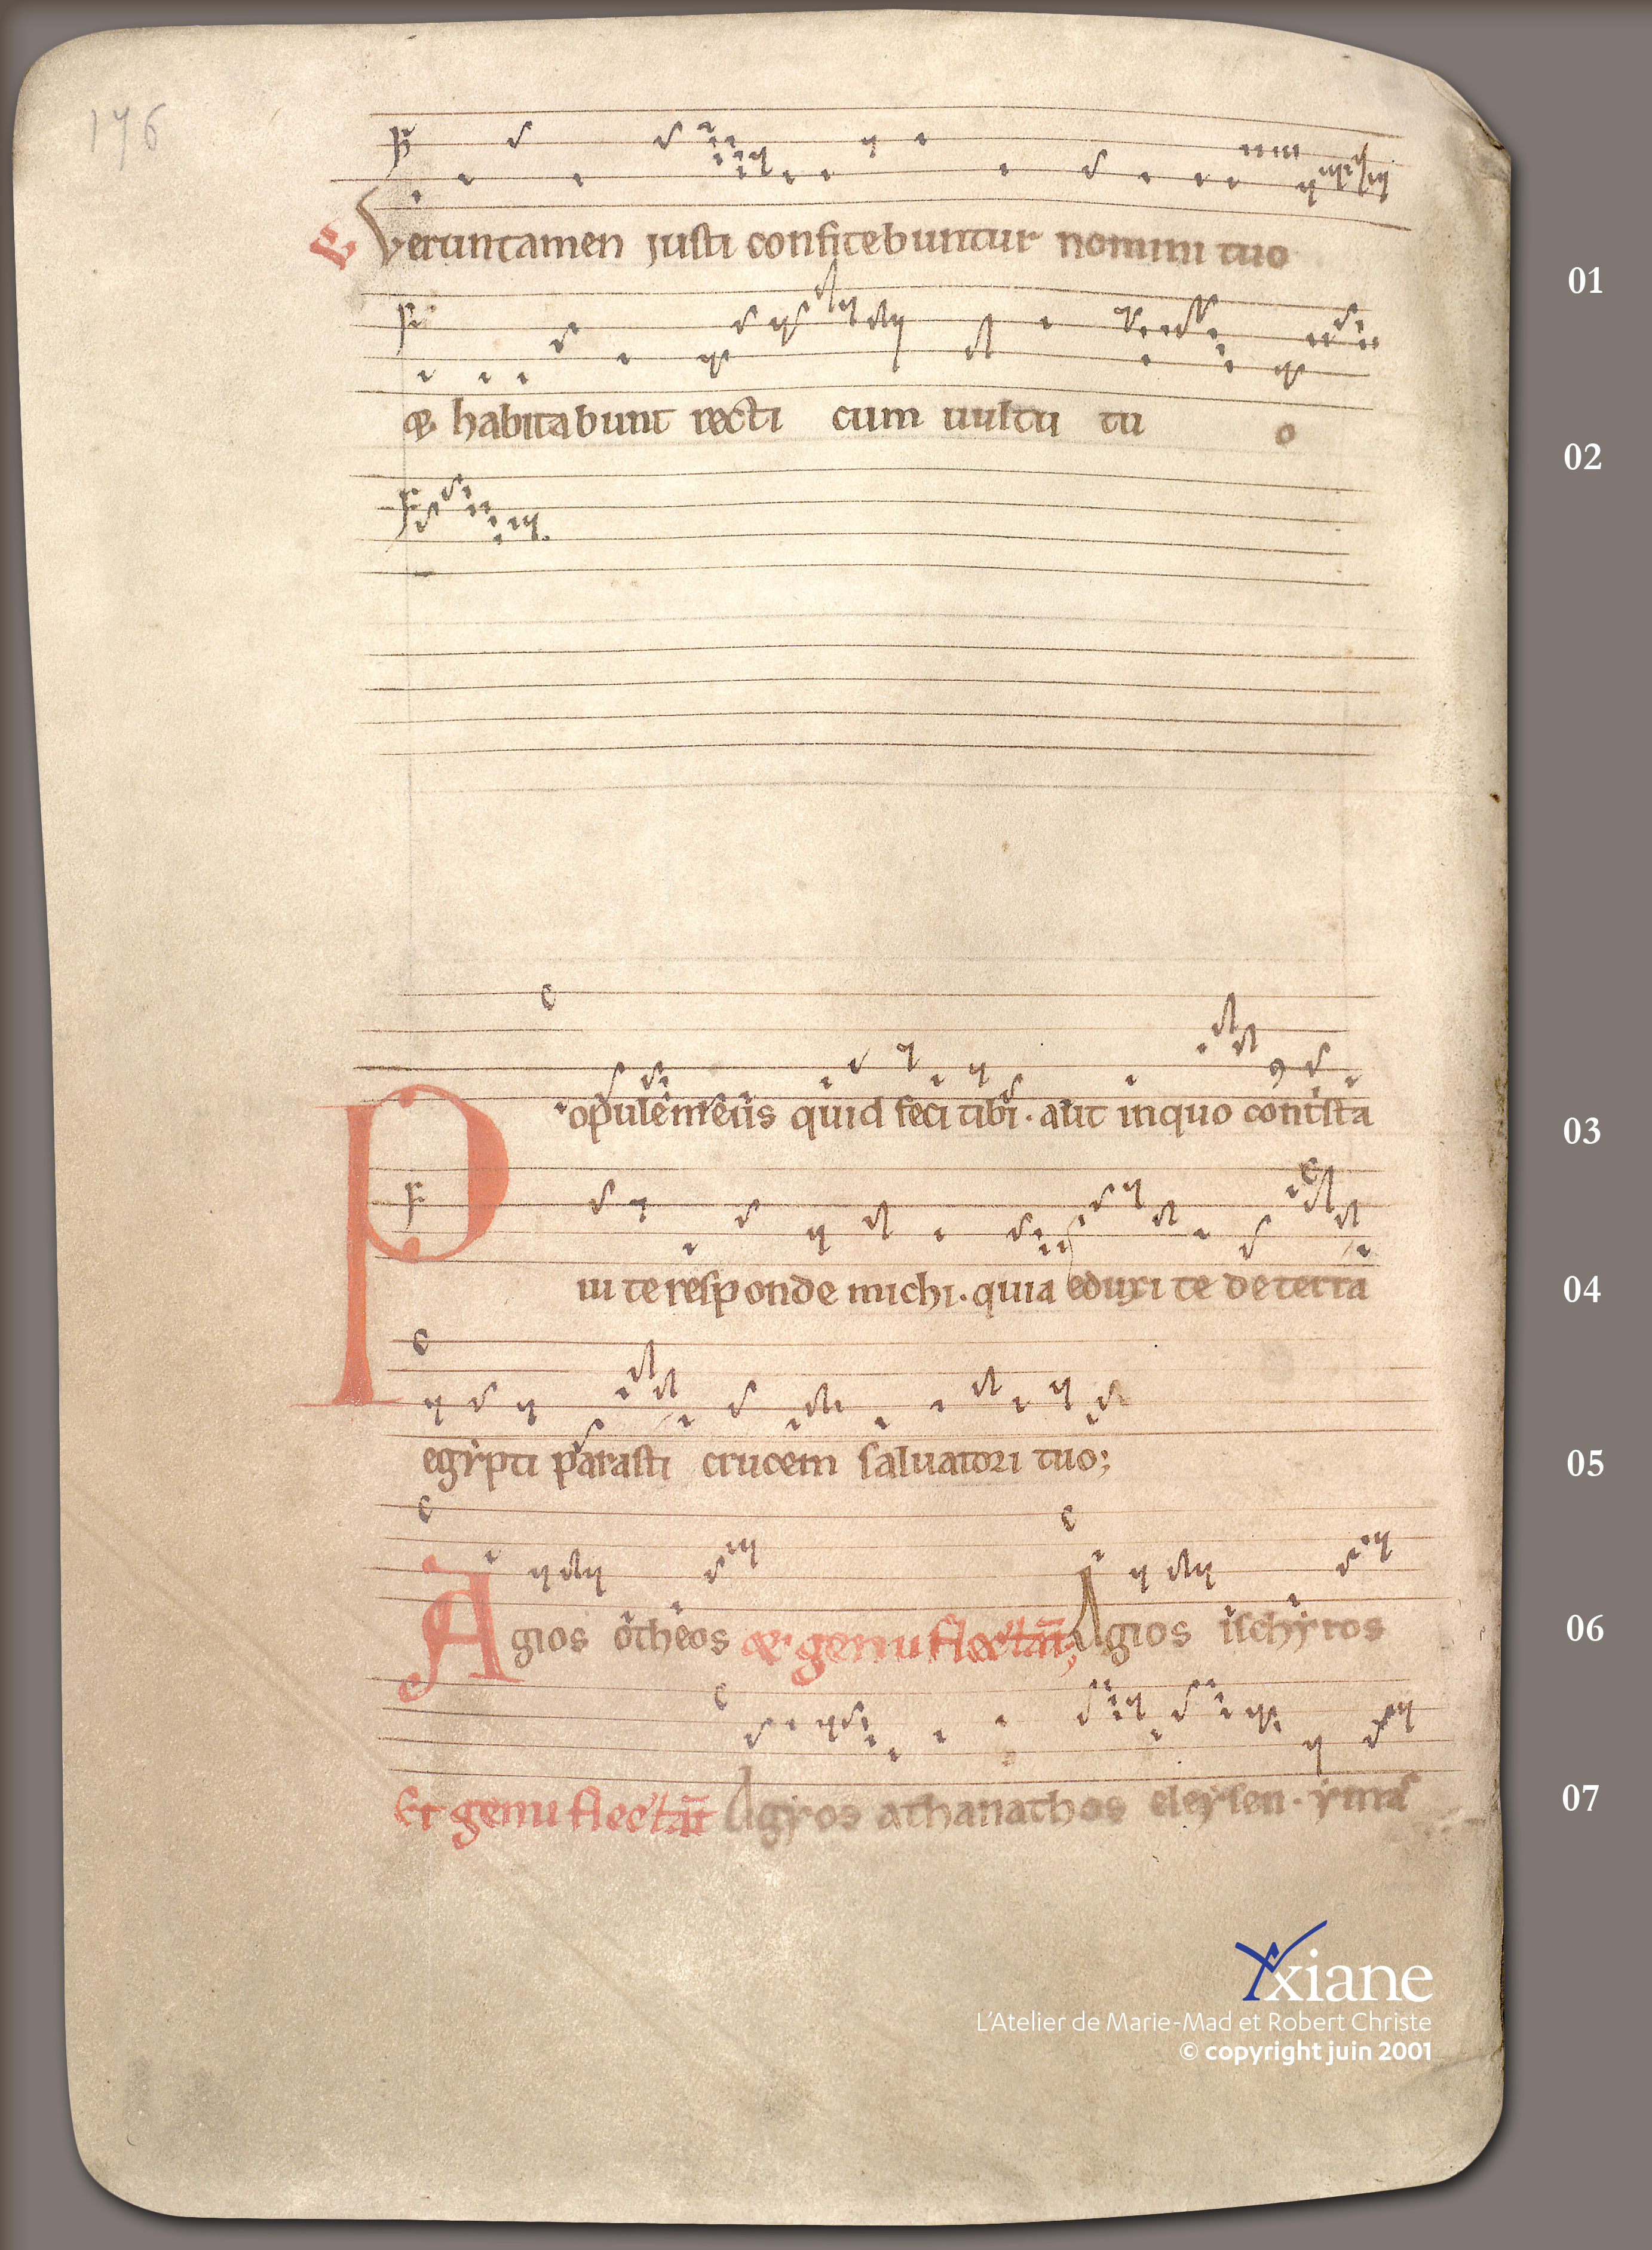 176
Veruntamen justi confitebuntur nomini tuo
01
& habitabunt recti cum uultu tu o
02
P opule meus quid feci tibi. aut inquo contista
03
ui te responde michi. quia eduxi te de terra
04
egypti parasti crucem saluatori tuo;
05
Agios otheos & genu flectāt; Agios ischyros
06
Et genu flectāt Agyos athanathos eleyson. ymas
07
Yxiane
L'Atelier de Marie-Mad et Robert Christe
© copyright juin 2001